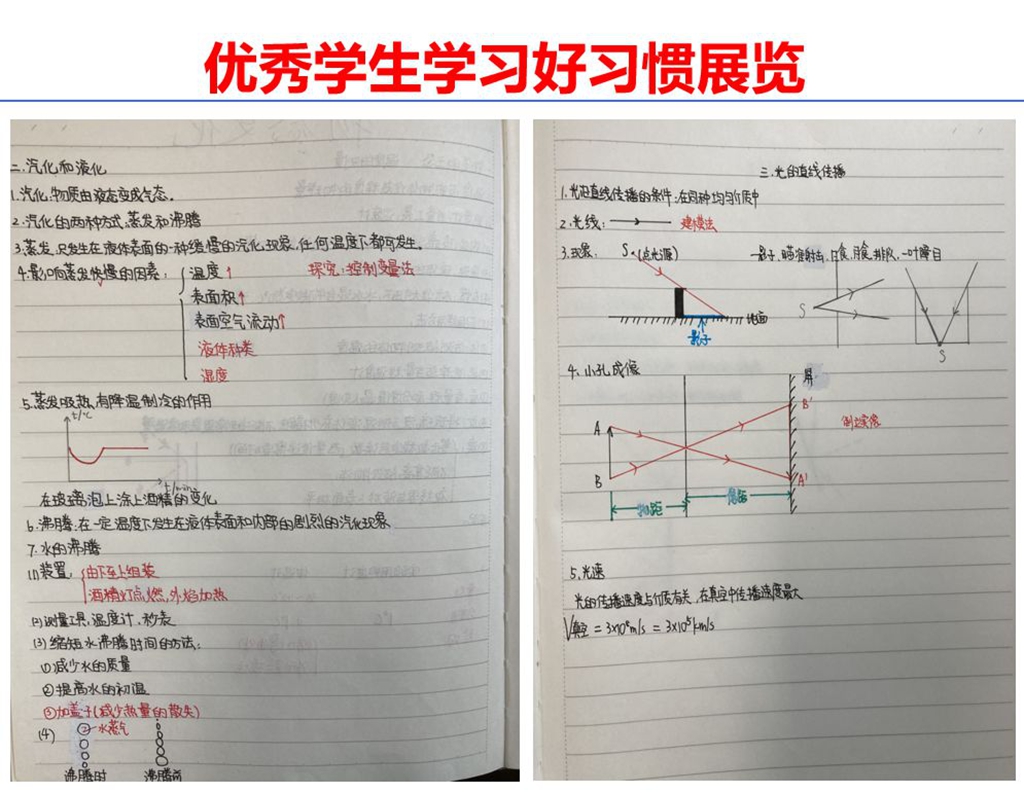 优秀学生学习好习惯展览
二.汽化和液化
1.汽化:物质由液态变成气态.
2.汽化的两种方式:蒸发和沸腾
3.蒸发:只发生在液体表面的一种缓慢的汽化现象,任何温度下都可发生.
4.影响蒸发快慢的因素:
温度↑
探究:控制变量法
表面积↑
表面空气流动↑
液体种类
湿度
5.蒸发吸热,有降温制冷的作用
t/℃
t/min
在玻璃泡上涂上酒精的变化
6.沸腾:在一定温度下发生在液体表面和内部的剧烈的汽化现象
7.水的沸腾
(1)装置:
由下至上组装
酒精灯点燃,外焰加热
(2)测量工具:温度计、秒表
(3)缩短水沸腾时间的方法:
①减少水的质量
②提高水的初温
③加盖子(减少热量的散失)
(4)
水蒸气
沸腾时 沸腾前
三.光的直线传播
1.光沿直线传播的条件:在同种均匀介质中
2.光线:
建模法
3.现象:
S.(点光源)
影子、瞄准射击、日食、月食、排队、一叶障目
S
地面
影子
S
4.小孔成像
屏
A
B
B'
A'
倒立实像
物距
像距
5.光速
光的传播速度与介质有关,在真空中传播速度最大
V真空=3×10⁸m/s=3×10⁵km/s